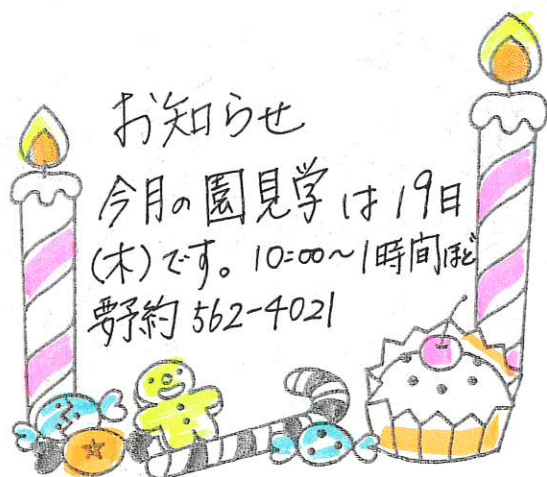 お知らせ
今月の園見学は19日
(木)です。10:00～1時間ほど
要予約 562-4021